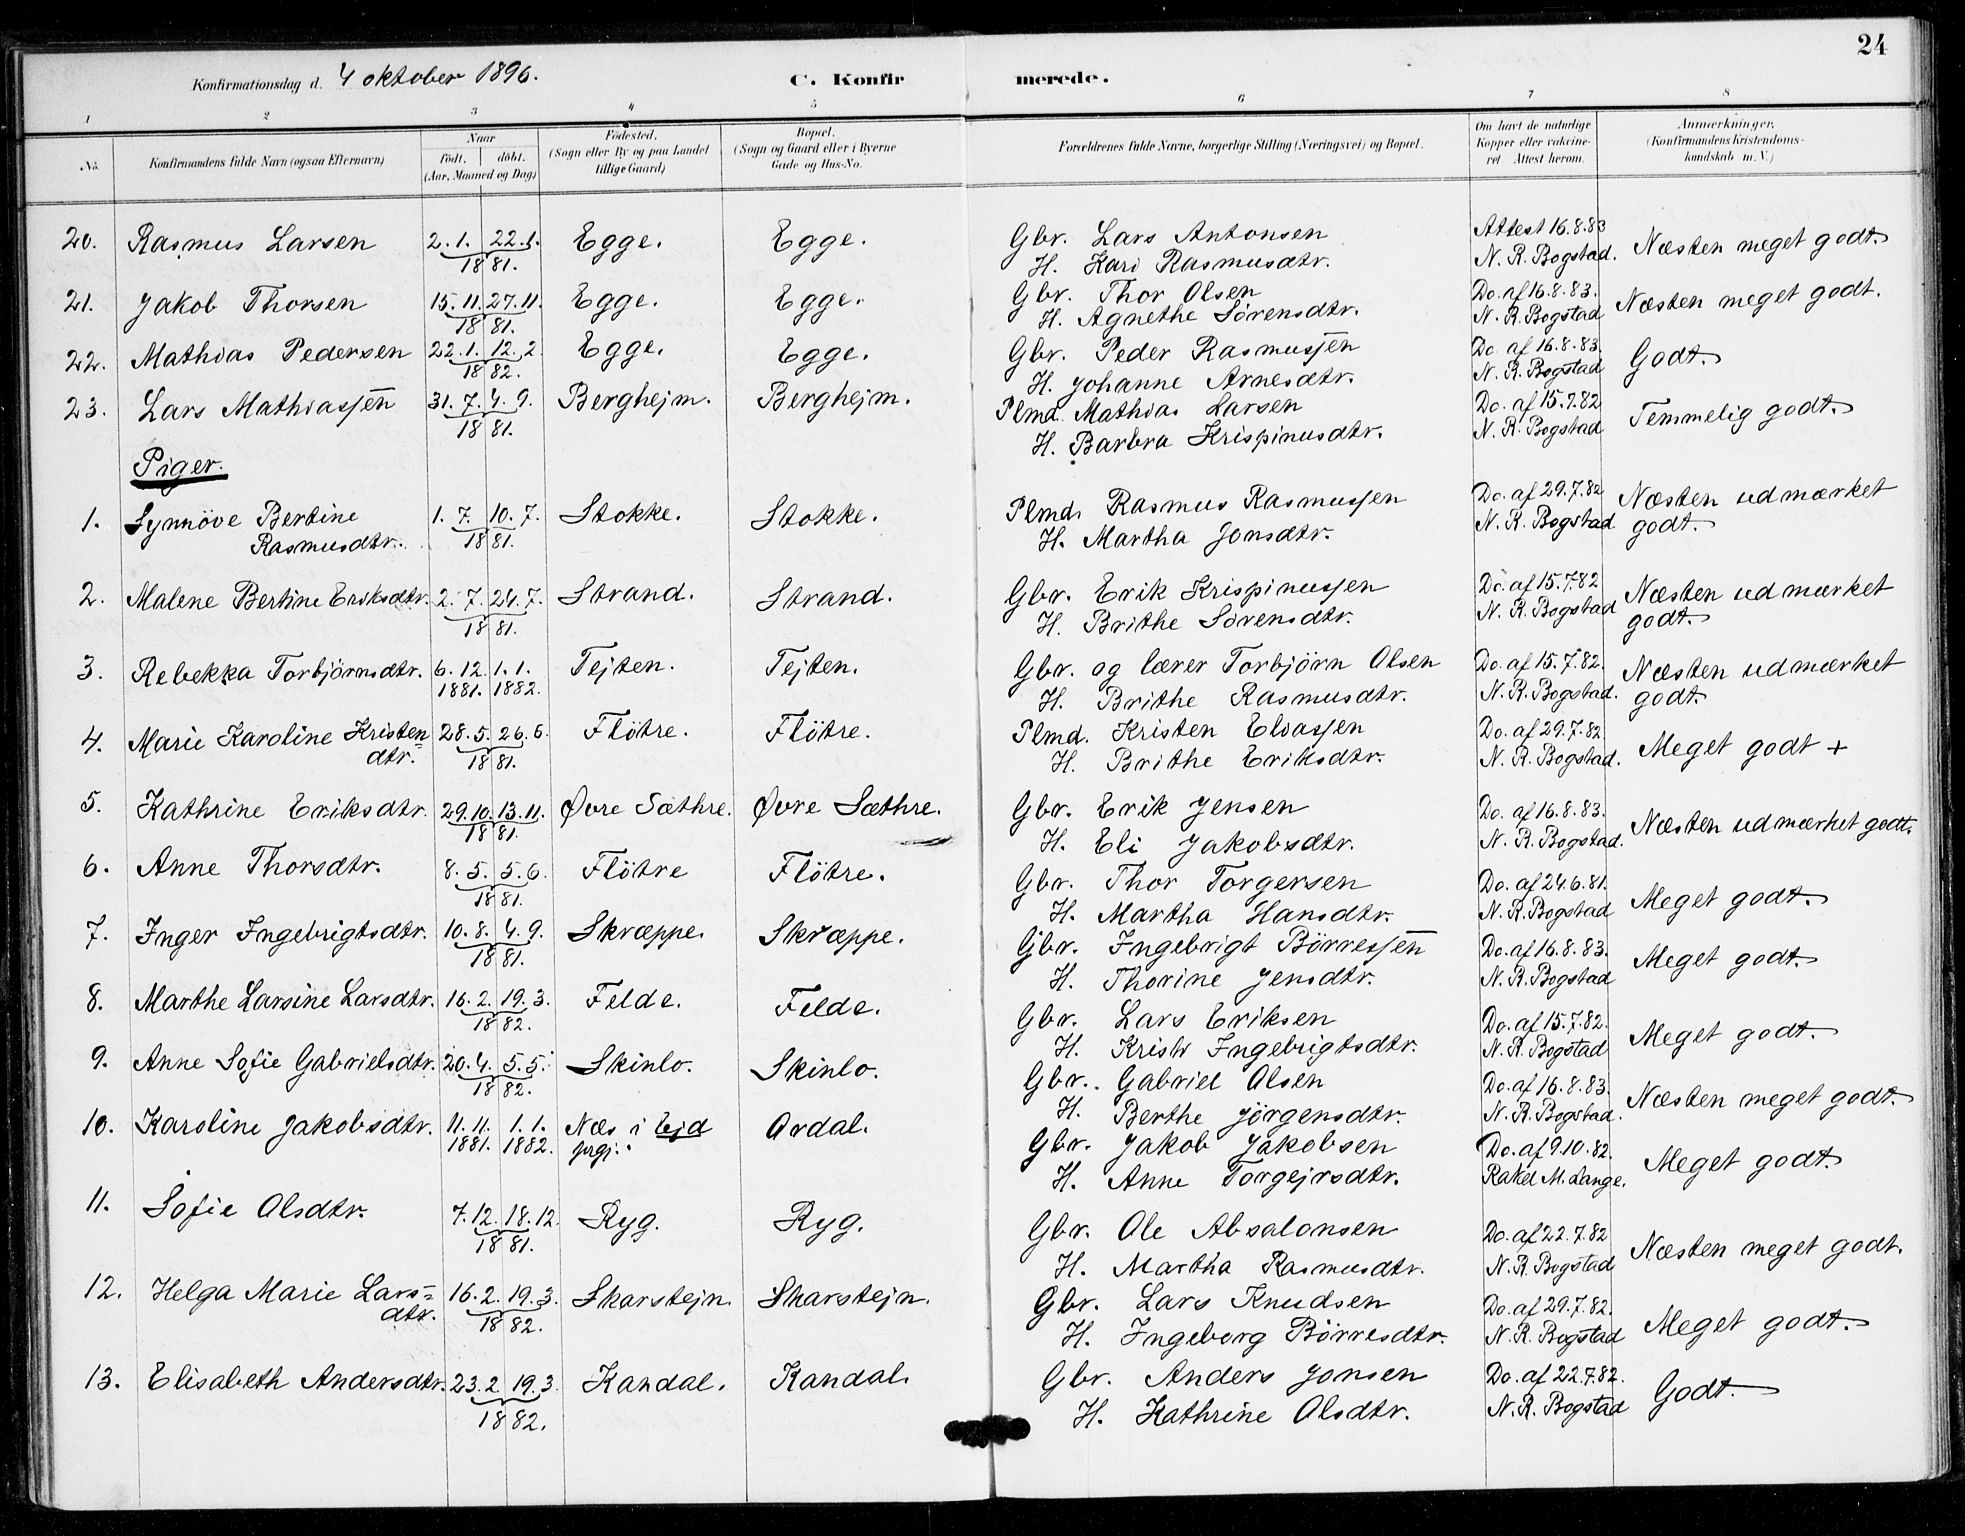 24
Konfirmationsdag d. 4 oktober 1896. C. Konfirmerede.
1 2 3 4 5 6 7 8
No. Konfirmandens fulde Navn (ogsaa Efternavn) Naar Født. døbt. (Aar, Maaned og Dag) Fødested. (Sogn eller By og paa Landet tillige Gaard) Bopæl. (Sogn og Gaard eller i Byerne Gade og Hus-No. Forældrenes fulde Navne, borgerlige Stilling (Næringsvei) og Bopæl. Om havt de naturlige Kopper eller vakcineret Attest herom. Anmærkninger. (Konfirmandens Kristendomskundskab m. V.)
20. Rasmus Larsen 2.1. 22.1. 1881. Egge. Egge. Gbr. Lars Antonsen Attest 16.8.83 Næsten meget godt.
H. Kari Rasmusdtr. N. R. Bogstad.
21. Jakob Thorsen 15.11. 27.11. 1881. Egge. Egge. Gbr. Thor Olsen Do. af 16.8.83. Næsten meget godt.
H. Agnethe Sørensdtr. N. R. Bogstad
22. Mathias Pedersen 22.1. 12.2 1882. Egge. Egge. Gbr. Peder Rasmussen Do af 16.8.83. Godt.
H. Johanne Arnesdtr. N. R. Bogstad
23. Lars Mathiassen 31.7. 4.9. 1881. Berghejm. Berghejm. Plmd. Mathias Larsen Do. af 15.7.82 Temmelig godt.
H. Barbra Krispinusdtr. N. R. Bogstad
Piger.
1. Synnöve Bertine 1.7. 10.7. 1881. Stokke. Stokke. Plmd. Rasmus Rasmussen Do. af 29.7.82 Næsten udmærket
Rasmusdtr. H. Martha Jonsdtr. N. R. Bogstad godt.
2. Malene Bertine Eriksdtr. 2.7. 24.7. 1881. Strand. Strand. Gbr. Erik Krispinussen Do. af 15.7.82 Næsten udmærket
H. Brithe Sørensdtr. N. R. Bogstad godt.
3. Rebekka Torbjörnsdtr. 6.12. 1881. 1.1. 1882. Tejten. Tejten. Gbr. og lærer Torbjörn Olsen Do. af 15.7.82. Næsten udmærket
H. Brithe Rasmusdtr. N. R. Bogstad. godt.
4. Marie Karoline Kristen= 28.5. 26.6. 1881. Flötre. Flötre. Plmd. Kristen Eliassen Do. af 29.7.82. Meget godt +
dtr. H. Brithe Eriksdtr. N. R. Bogstad.
5. Kathrine Eriksdtr. 29.10. 13.11. 1881. Øvre Sæthre. Øvre Sæthre. Gbr. Erik Jensen Do. af 16.8.83. Næsten udmærket godt.
H. Eli Jakobsdtr. N. R. Bogstad.
6. Anne Thorsdtr. 8.5. 5.6. 1881. Flötre Flötre. Gbr. Thor Torgersen Do. af 24.6.81. Meget godt.
H. Martha Hansdtr. N. R. Bogstad
7. Inger Ingebrigtsdtr. 10.8. 4.9. 1881. Skræppe. Skræppe. Gbr. Ingebrigt Börressen Do. af 16.8.83. Meget godt.
H. Thorine Jensdtr. N. R. Bogstad
8. Marthe Larsine Larsdtr. 16.2. 19.3. 1882. Felde. Felde. Gbr. Lars Eriksen Do. af 15.7.82. Meget godt.
H. Kristi Ingebrigtsdtr. N. R. Bogstad
9. Anne Sofie Gabrielsdtr. 20.4. 5.5. 1882. Skinlo. Skinlo. Gbr. Gabriel Olsen Do. af 16.8.83. Næsten meget godt.
H. Berthe Jörgensdtr. N. R. Bogstad.
10. Karoline Jakobsdtr. 11.11. 1881. 1.1. 1882. Næs i Ejd prgj. Ardal. Gbr. Jakob Jakobsen Do. af 9.10.82. Meget godt.
H. Anne Torgejrsdtr. Rakel M. Lange.
11. Sofie Olsdtr. 7.12. 18.12. 1881. Ryg. Ryg. Gbr. Ole Absalonsen Do. af 22.7.82 Næsten meget godt.
H. Martha Rasmusdtr. N. R. Bogstad
12. Helga Marie Lars= 16.2. 19.3. 1882. Skarstejn. Skarstejn. Gbr. Lars Knudsen Do. af 29.7.82. Meget godt.
dtr. H. Ingeborg Börresdtr. N. R. Bogstad
13. Elisabeth Andersdtr. 23.2 19.3. 1882. Kandal. Kandal. Gbr. Anders Jonsen Do. af 22.7.82. Godt.
H. Kathrine Olsdtr. N. R. Bogstad